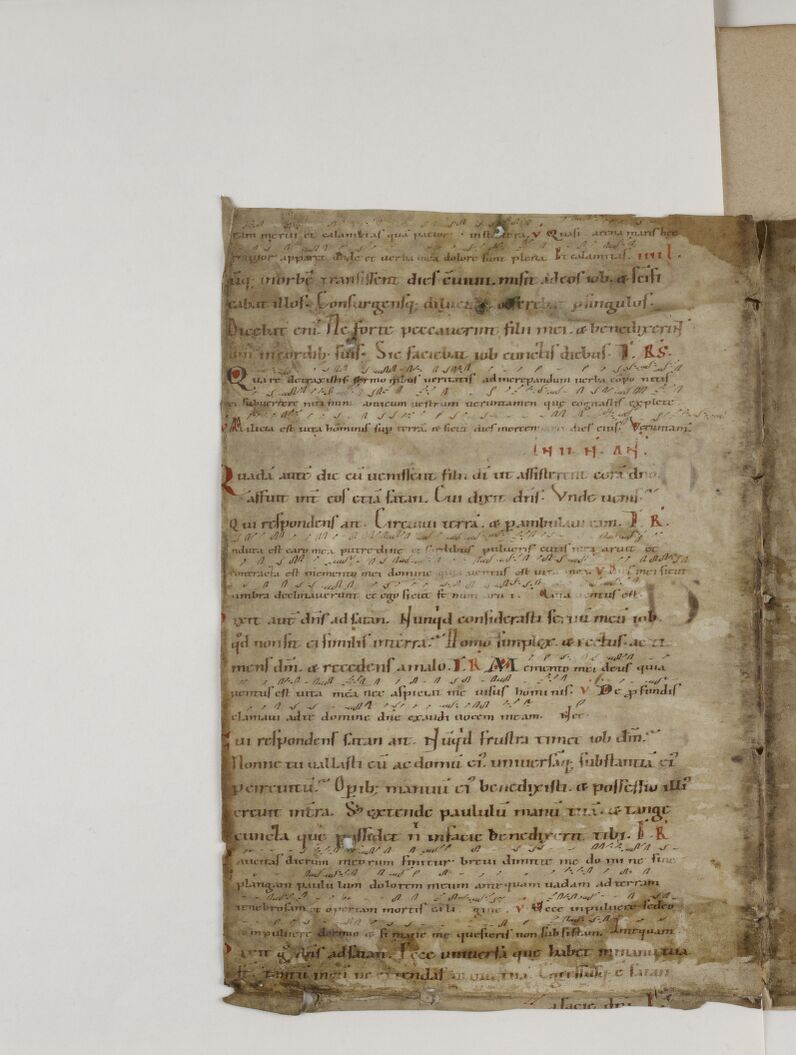 iram merui et calamitas qua patior v Quasi arena maris hec
grauior apparet et uerba mea dolore sunt plena Et calamitas. IIII L.
transissent dies misit ad eos iob. & scifi
cabat illos. Consurgensq; diluculo offerebat p singulos.
Dicebat eni. Ne forte peccauerint filii mei. & benedixerint
in cordib; suis. Sic faciebat iob cunctis diebus. R
Quare detraxistis sermonibus ueritatis ad increpandum uerba
subuertere amicum uestrum ueruntamen que cogitastis explete
Milicia est uita hominis sup terra et sicut dies eius. Veruntam.
IN II. N. AN.
Quada aute die cu uenissent filii di ut assisterent cora dno.
affuit int eos etia satan. Cui dixit dns. Vnde uenis.
Qui respondens ait. Circuiui terra. & pambulaui eam. I. R.
nduta est caro mea putredine et sordibus pulueris cutis mea aruit et
contracta est memento mei domine quia uentus est uita mea V mei sicut
umbra declinauerunt et ego sicut Quia uentus est.
ixit aut dns ad satan. Nunqd considerasti seruu meu iob.
qd non sit ei similis in terra. Homo simplex. & rectus. ac ti
mens dm. & recedens a malo. I. R Memento mei deus quia
uentus est uita mea nec aspiciat me uisus hominis. V De pfundis
clamaui ad te domine dne exaudi uocem meam. Nec
ui respondens satan ait. Nuqd frustra timet iob dm.
Nonne tu uallasti eu ac domu ei. uniuersaq; substantia ei
p circuitu. Opib; manuu ei benedixisti. & possessio illi
creuit in tra. S; extende paululu manu tua. & tange
cuncta que possidet n in facie benedixerit tibi. I. R
aucitas dierum meorum finitur breui dimitte me domine sine
plangam paululum dolorem meum antequam uadam ad terram
tenebrosam et opertam mortis caligine. V Ecce in puluere sedeo
in puluere dormio et si mane me quesieris non subsistam. Antequam
ixit g dns ad satan. Ecce uniuersa que habet in manu tua
st. tantu in eu ne extendas manu tua. Egressusq; e satan
a facie dni. I. R